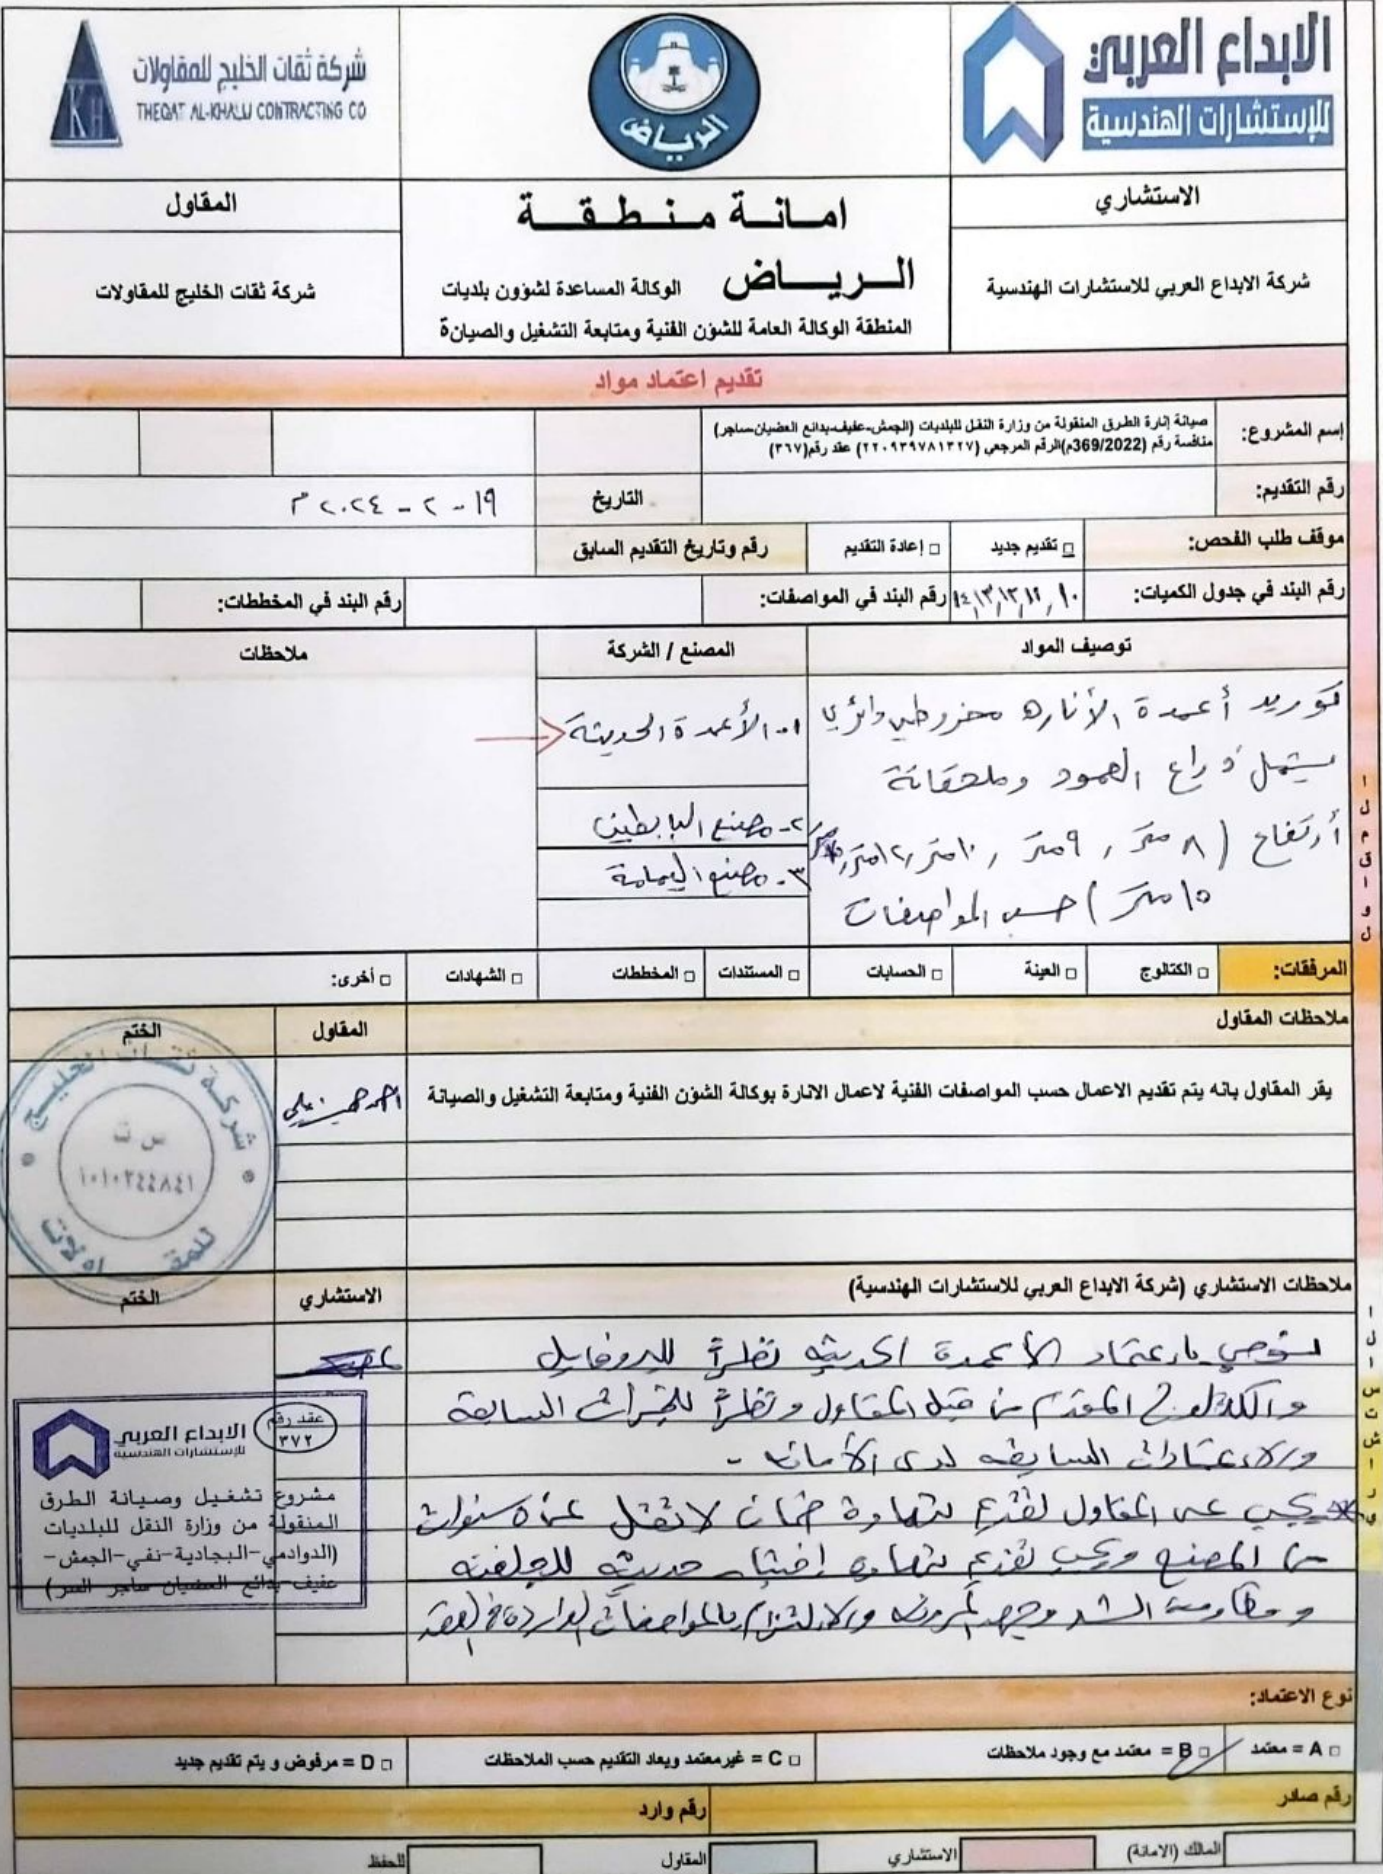 الابداع العربي
للإستشارات الهندسية
الرياض
شركة ثقات الخليج للمقاولات
THEQAT AL-KHALIJ CONTRACTING CO
KH
الاستشاري
امانة منطقة
المقاول
شركة الابداع العربي للاستشارات الهندسية
الرياض الوكالة المساعدة لشؤون بلديات
المنطقة الوكالة العامة للشؤن الفنية ومتابعة التشغيل والصيانة
شركة ثقات الخليج للمقاولات
تقديم اعتماد مواد
إسم المشروع:
صيانة إنارة الطرق المنقولة من وزارة النقل للبلديات (الجمش-عفيف-بدائع العضيان-ساجر)
منافسة رقم (369/2022م)الرقم المرجعي (٢٢٠٩٣٩٧٨١٣٢٧) عقد رقم(٣٦٧)
رقم التقديم:
التاريخ
١٩ - ٢ - ٢٠٢٤ م
موقف طلب الفحص:
□ تقديم جديد
□ إعادة التقديم
رقم وتاريخ التقديم السابق
رقم البند في جدول الكميات:
١٠, ١١, ١٢, ١٣, ١٤
رقم البند في المواصفات:
رقم البند في المخططات:
توصيف المواد
المصنع / الشركة
ملاحظات
توريد أعمدة الأناره مخروطي دائري
يشمل ذراع العمود وملحقاتة
أرتفاع (٨ متر , ٩ متر , ١٠ متر, ١٢ متر,
١٥ متر) حسب المواصفات
١- الأعمدة الحديثة
٢- مصنع البابطين
٣- مصنع اليمامة
المرفقات:
□ الكتالوج
□ العينة
□ الحسابات
□ المستندات
□ المخططات
□ الشهادات
□ أخرى:
ملاحظات المقاول
المقاول
الختم
يقر المقاول بانه يتم تقديم الاعمال حسب المواصفات الفنية لاعمال الانارة بوكالة الشؤن الفنية ومتابعة التشغيل والصيانة
شركة ثقات الخليج
س ت
١٠١٠٢٤٤٨٤١
للمقاولات
ملاحظات الاستشاري (شركة الابداع العربي للاستشارات الهندسية)
الاستشاري
الختم
نوصي باعتماد الأعمدة الحديثه نظراً للبروفايل
والكتالوج المقدم من قبل المقاول ونظراً للخبرات السابقة
والاعتمادات السابقه لدى الأمانه -
يجب على المقاول تقديم شهادة ضمان لاتقل عن ٥ سنوات
من المصنع ويجب تقديم شهادة إختبار حديثه للجلفنه
ومقاومة الشد وجهد المرونه والالتزام بالمواصفات الواردة في العقد
عقد رقم
٣٧٢
الابداع العربي
للإستشارات الهندسية
مشروع تشغيل وصيانة الطرق
المنقولة من وزارة النقل للبلديات
(الدوادمي-البجادية-نفي-الجمش-
عفيف-بدائع العضيان ساجر السر)
نوع الاعتماد:
□ A = معتمد
□ B = معتمد مع وجود ملاحظات
□ C = غيرمعتمد ويعاد التقديم حسب الملاحظات
□ D = مرفوض و يتم تقديم جديد
رقم صادر
رقم وارد
المالك (الامانة)
الاستشاري
المقاول
للحفظ
المقاول
الاستشاري